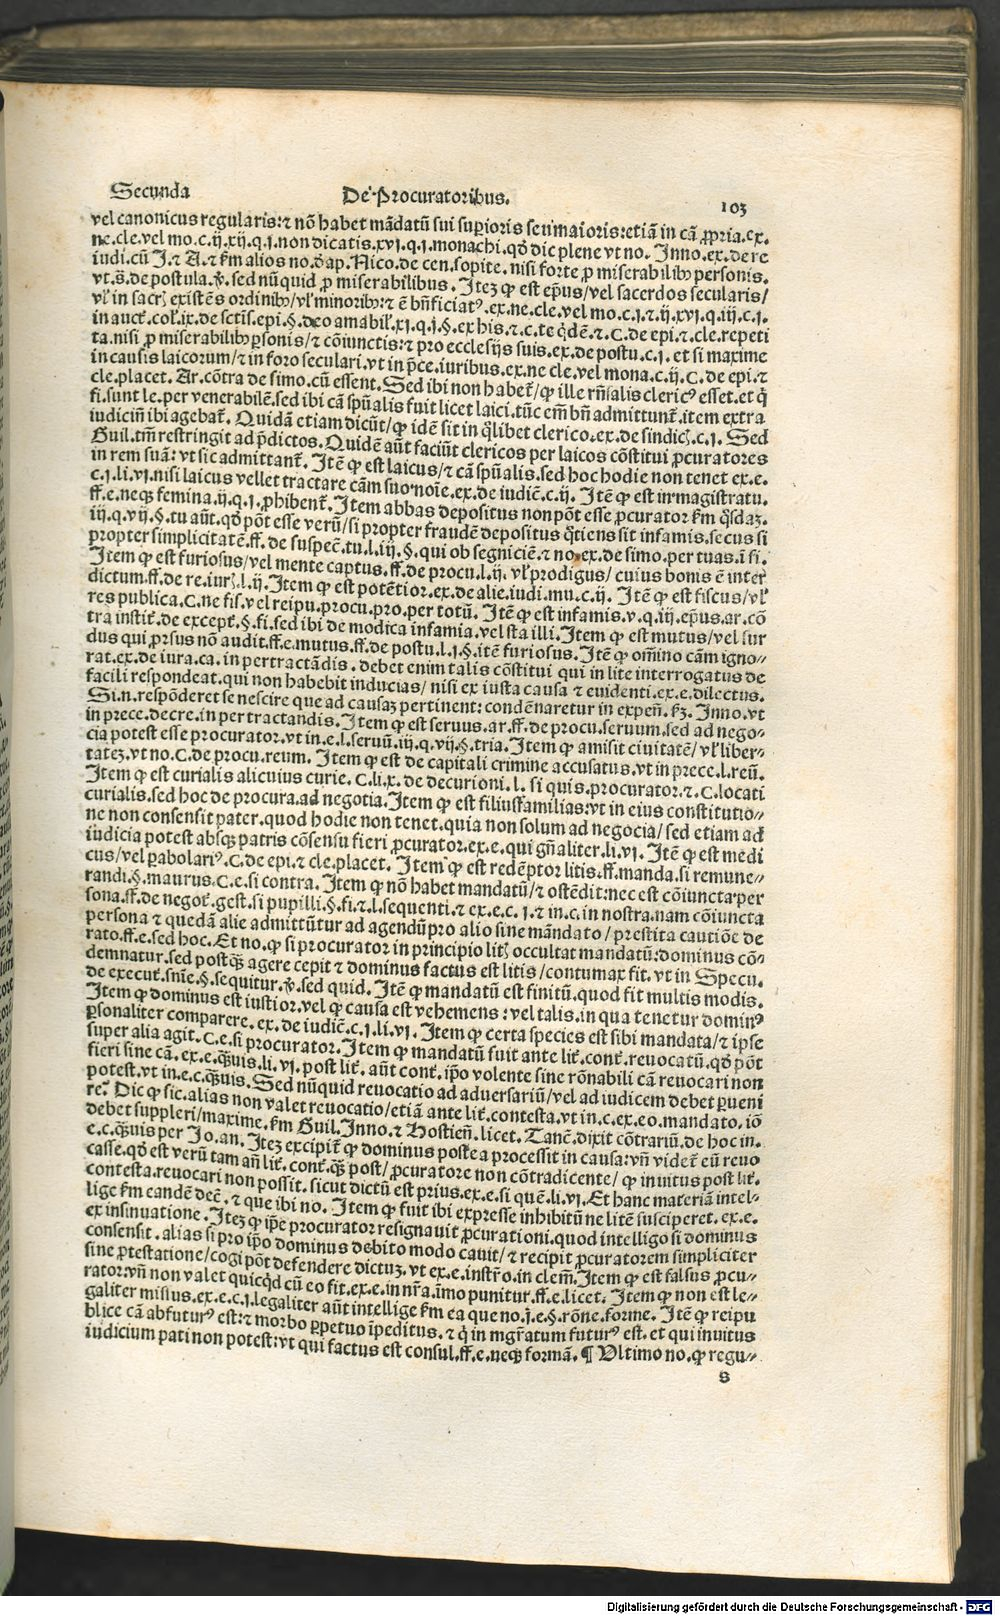 Secunda De Procuratoribus. 103
vel canonicus regularis:⁊ nō habet mādatū sui superioris seu maioris:etiā in cā ꝓpria.ex.
ne.cle.vel mo.c.ij.xij.q.j.non dicatis.xvj.q.j.monachi.qđ dic plene vt no. Inno.ex.de re
iudi.cū J.⁊ A.⁊ ẜm alios no.đ ap. Nico.de cen.sopite. nisi forte ꝓ miserabilibꝰ personis.
vt.s̄.de postula.ꝟ.sed nūquid ꝓ miserabilibus. Itez ꝙ est epūs/vel sacerdos secularis/
vl' in sacr̄ existēs ordinibꝰ/vl' minoribꝰ:⁊ ē bn̄ficiatꝰ.ex.ne.cle.vel mo.c.j.⁊.ij.xvj.q.iij.c.j.
in auct̄.col'.ix.de sctīs.epi.§.deo amabil'.xj.q.j.§.ex his.⁊.c.te qdē.⁊.C.de epi.⁊ cle.repeti
ta.nisi ꝓ miserabilibꝰ ꝑsonis/⁊ cōiunctis:⁊ pro ecclesijs suis.ex.de postu.c.j. et si maxime
in causis laicorum/⁊ in foro seculari.vt in p̄ce.iuribus.ex.ne cle.vel mona.c.ij.C.de epi.⁊
cle.placet. Ar.cōtra de simo.cū essent. Sed ibi non habet̄/ꝙ ille rn̄salis clericꝰ esset.et q̇
fi.sunt le.per venerabilē.sed ibi cā spūalis fuit licet laici.tūc em̄ bn̄ admittunt̄.item extra
iudiciū ibi agebat̄. Quidā etiam dicūt/ꝙ idē sit in q̄libet clerico.ex.de sindic̄.c.j. Sed
Guil.tm̄ restringit ad p̄dictos. Quidē aūt faciūt clericos per laicos cōstitui ꝓcuratores
in rem suā:vt sic admittant̄. Itē ꝙ est laicus/⁊ cā spūalis.sed hoc hodie non tenet ex.e.
c.j.li.vj.nisi laicus vellet tractare cām suo noīe.ex.de iudic̄.c.ij. Itē ꝙ est in magistratu.
ff.e.neqꝫ femina.ij.q.j.ꝓhibent̄. Item abbas depositus non pōt esse ꝓcurator ẜm q̄sdaz.
iij.q.vij.§.tu aūt.qđ pōt esse verū/si propter fraudē depositus q̄tiens sit infamis.secus si
propter simplicitatē.ff.de suspec̄.tu.l.iij.§.qui ob segniciē.⁊ no.ex.de simo.per tuas.ī fi.
Item ꝙ est furiosus/vel mente captus.ff.de procu.l.ij. vl' prodigus/cuius bonis ē inter
dictum.ff.de re.iur̄.l.ij. Item ꝙ est potētior.ex.de alie.iudi.mu.c.ij. Itē ꝙ est fiscus/vl'
res publica.C.ne fis.vel reipu.procu.pro.per totū. Itē ꝙ est infamis.v.q.iij.epūs.ar.cō
tra instit̄.de except̄.§.fi.sed ibi de modica infamia.vel sta illi. Item ꝙ est mutus/vel sur
dus qui ꝓrsus nō audit.ff.e.mutus.ff.de postu.l.j.§.itē furiosus. Itē ꝙ oīno cām igno⸗
rat.ex.de iura.ca.in pertractādis. debet enim talis cōstitui qui in lite interrogatus de
facili respondeat.qui non habebit inducias/ nisi ex iusta causa ⁊ euidenti.ex.e.dilectus.
Si.n.respōderet se nescire que ad causaz pertinent: condēnaretur in expen̄. ẜz. Inno.vt
in prece.decre.in pertractandis. Item ꝙ est seruus.ar.ff.de procu.seruum.sed ad nego⸗
cia potest esse procurator.vt in.e.l.seruū.iij.q.vij.§.tria. Item ꝙ amisit ciuitatē/vl' liber⸗
tatez.vt no.C.de procu.reum. Item ꝙ est de capitali crimine accusatus.vt in prece.l.reū.
Item ꝙ est curialis alicuius curie. C.li.x.de decurioni.l. si quis.procurator.⁊.C.locati
curialis.sed hoc de procura.ad negotia. Item ꝙ est filiusfamilias:vt in eius constitutio⸗
ne non consensit pater.quod hodie non tenet.quia non solum ad negocia/sed etiam ad
iudicia potest absqꝫ patris cōsensu fieri ꝓcurator.ex.e.qui gn̄aliter.li.vj. Itē ꝙ est medi
cus/vel ꝑabolariꝰ.C.de epi.⁊ cle.placet. Item ꝙ est redēptor litis.ff.manda.si remune⸗
randi.§.maurus.C.e.si contra. Item ꝙ nō habet mandatū/⁊ ostēdit:nec est cōiuncta per
sona.ff.de negot̄.gest.si pupilli.§.fi.⁊.l.sequenti.⁊ ex.e.c. j.⁊ in.c.in nostra.nam cōiuncta
persona ⁊ quedā alie admittūtur ad agendū pro alio sine mādato/prestita cautiōe de
rato.ff.e.sed hoc. Et no.ꝙ si procurator in principio lit̄ occultat mandatū:dominus cō⸗
demnatur.sed postq̄ꝫ agere cepit ⁊ dominus factus est litis/contumax fit.vt in Specu.
de execut̄.snīe.§.sequitur.ꝟ.sed quid. Itē ꝙ mandatū est finitū.quod fit multis modis.
Item ꝙ dominus est iustior.vel ꝙ causa est vehemens:vel talis.in qua tenetur dominꝰ
ꝑsonaliter comparere.ex.de iudic̄.c.j.li.vj. Item ꝙ certa species est sibi mandata/⁊ ipse
super alia agit.C.e.si procurator. Item ꝙ mandatū fuit ante lit̄.cont̄.reuocatū.qđ pōt
fieri sine cā.ex.e.q̄ꝫuis.li.vj.post lit̄.aūt cont̄.ipō volente sine rōnabili cā reuocari non
potest.vt in.e.c.q̄ꝫuis. Sed nūquid reuocatio ad aduersariū/vel ad iudicem debet ꝑueni
re? Dic ꝙ sic.alias non valet reuocatio/etiā ante lit̄.contesta.vt in.c.ex.eo.mandato.iō
debet suppleri/maxime.ẜm Guil. Inno.⁊ Hostien̄.licet. Tanc̄.dixit cōtrariū.de hoc in.
e.c.q̄ꝫuis per Jo.an. Itez excipit̄ ꝙ dominus postea processit in causa:vn̄ videt̄ eū reuo
casse.qđ est verū tam an̄ lit̄.cont̄.q̄ꝫ post/ꝓcuratore non cōtradicente/ꝙ inuitus post lit̄.
contesta.reuocari non possit.sicut dictū est prius.ex.e.si quē.li.vj. Et hanc materiā intel⸗
lige ẜm eandē decē.⁊ que ibi no. Item ꝙ fuit ibi expresse inhibitū ne litē susciperet.ex.e.
ex insinuatione. Itez ꝙ ipē procurator resignauit ꝓcurationi.quod intelligo si dominus
consensit.alias si pro ipō dominus debito modo cauit/⁊ recipit ꝓcuratorem simpliciter
sine ꝓtestatione/cogi pōt defendere dictuz.vt ex.e.instr̄o.in clem̄. Item ꝙ est falsus ꝓcu⸗
rator:vn̄ non valet quicq̄d cū eo fit.ex.e.in nr̄a.īmo punitur.ff.e.licet. Item ꝙ non est le⸗
galiter missus.ex.e.c.j.legaliter aūt intellige ẜm ea que no.j.e.§.rōne.forme. Itē ꝙ reipu
blice cā abfuturꝰ est:⁊ morbo ꝑpetuo īpeditus.⁊ q̇ in mgr̄atum futurꝰ est.et qui inuitus
iudicium pati non potest:vt qui factus est consul.ff.e.neqꝫ formā. ¶ Vltimo no.ꝙ regu⸗
s
Digitalisierung gefördert durch die Deutsche Forschungsgemeinschaft - DFG